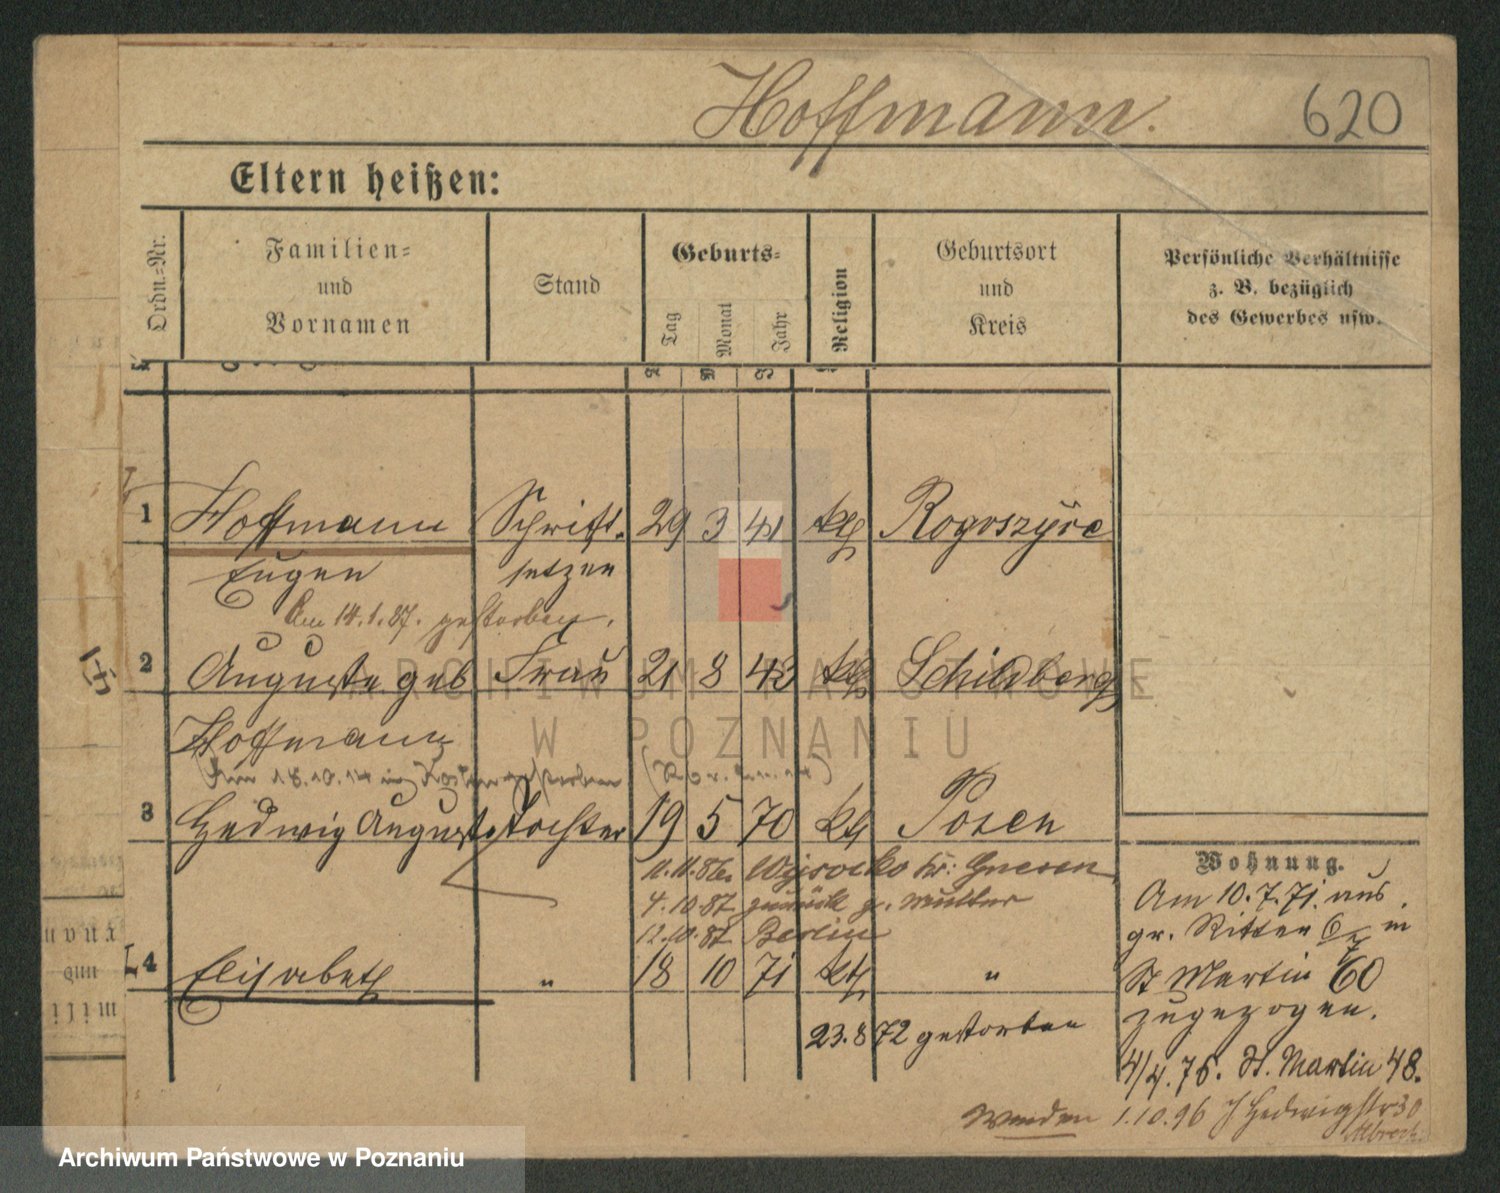 Hoffmann. 620
Eltern heißen:
Ordn.-Nr.
Familien-
und
Vornamen
Stand
Geburts-
Tag
Monat
Jahr
Religion
Geburtsort
und
Kreis
Persönliche Verhältnisse
z. B. bezüglich
des Gewerbes usw.
1 Hoffmann Schrift- 29 3 41 kth Rogoszyce
Eugen setzer
Am 14.1.87. gestorben.
2 Auguste geb Frau 21 8 43 kth Schildberg
Hoffmann
Am 18.10.14 in gestorben
3 Hedwig Auguste Tochter 19 5 70 kth Posen
11.11.86. Wysocko Kr: Gnesen
4.10.87 zurück z. Mutter
12.10.87 Berlin
4 Elisabeth " 18 10 71 kth "
23.8 72 gestorben
Wohnung.
Am 10.7.71. aus
gr. Ritter 6/7 in
St Martin 60
zugezogen.
4/4.75. St. Martin 48.
1.10.96 Hedwigstr 30
ARCHIWUM PAŃSTWOWE
W POZNANIU
Archiwum Państwowe w Poznaniu